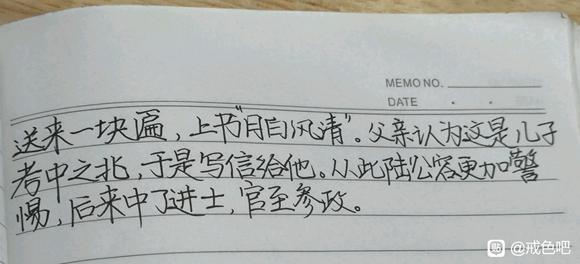 MEMO NO.
DATE
送来一块匾，上书"月白风清"。父亲认为这是儿子
考中之兆，于是写信给他。从此陆公容更加警
惕，后来中了进士，官至参政。
贴 @戒色吧